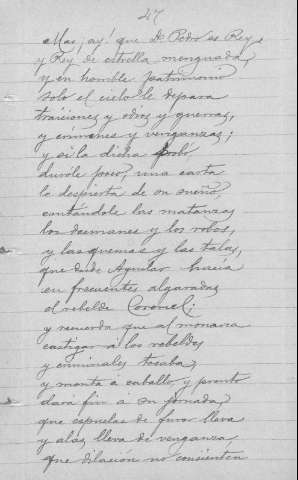 47
Mas, ¡ay! que D. Pedro es Rey,
y Rey de estrella menguada,
y en horrible patrimonio
solo el cielo le depara
traiciones y odios y guerras,
y crímenes y venganzas;
y si la dicha probó,
duróle poco; una carta
le despierta de su sueño,
contándole las matanzas,
los desmanes y los robos,
y las quemas y las talas,
que desde Aguilar hacía
en frecuentes algaradas
el rebelde Coronel;
y recuerda que al monarca
castigar á los rebeldes
y criminales tocaba;
y monta á caballo, y pronto
dará fin á su jornada,
que espuelas de furor lleva
y alas lleva de venganza,
que dilación no consienten